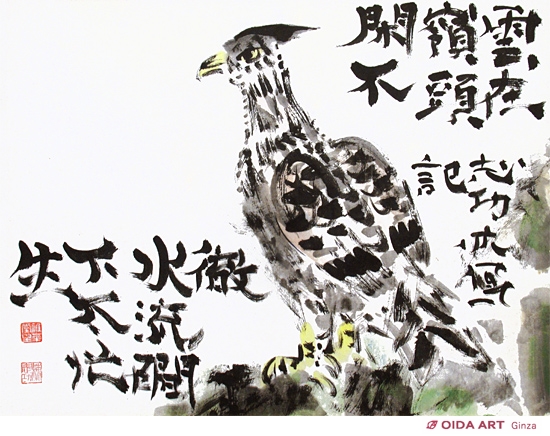 雲在
嶺頭
閑不
志功
記
徹
水流澗
下太忙
生
OIDA ART Ginza